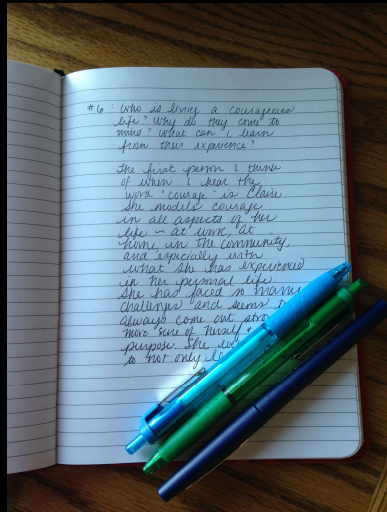 #6: Who is living a courageous
life? Why do they come to
mind? What can I learn
from their experience?
The first person I think
of when I hear the
word "courage" is Claire.
She models courage
in all aspects of her
life - at work, at
home, in the community,
and especially with
what she has experienced
in her personal life.
She has faced so many
challenges and seems
always come out
more sure of herself
purpose. She
to not only